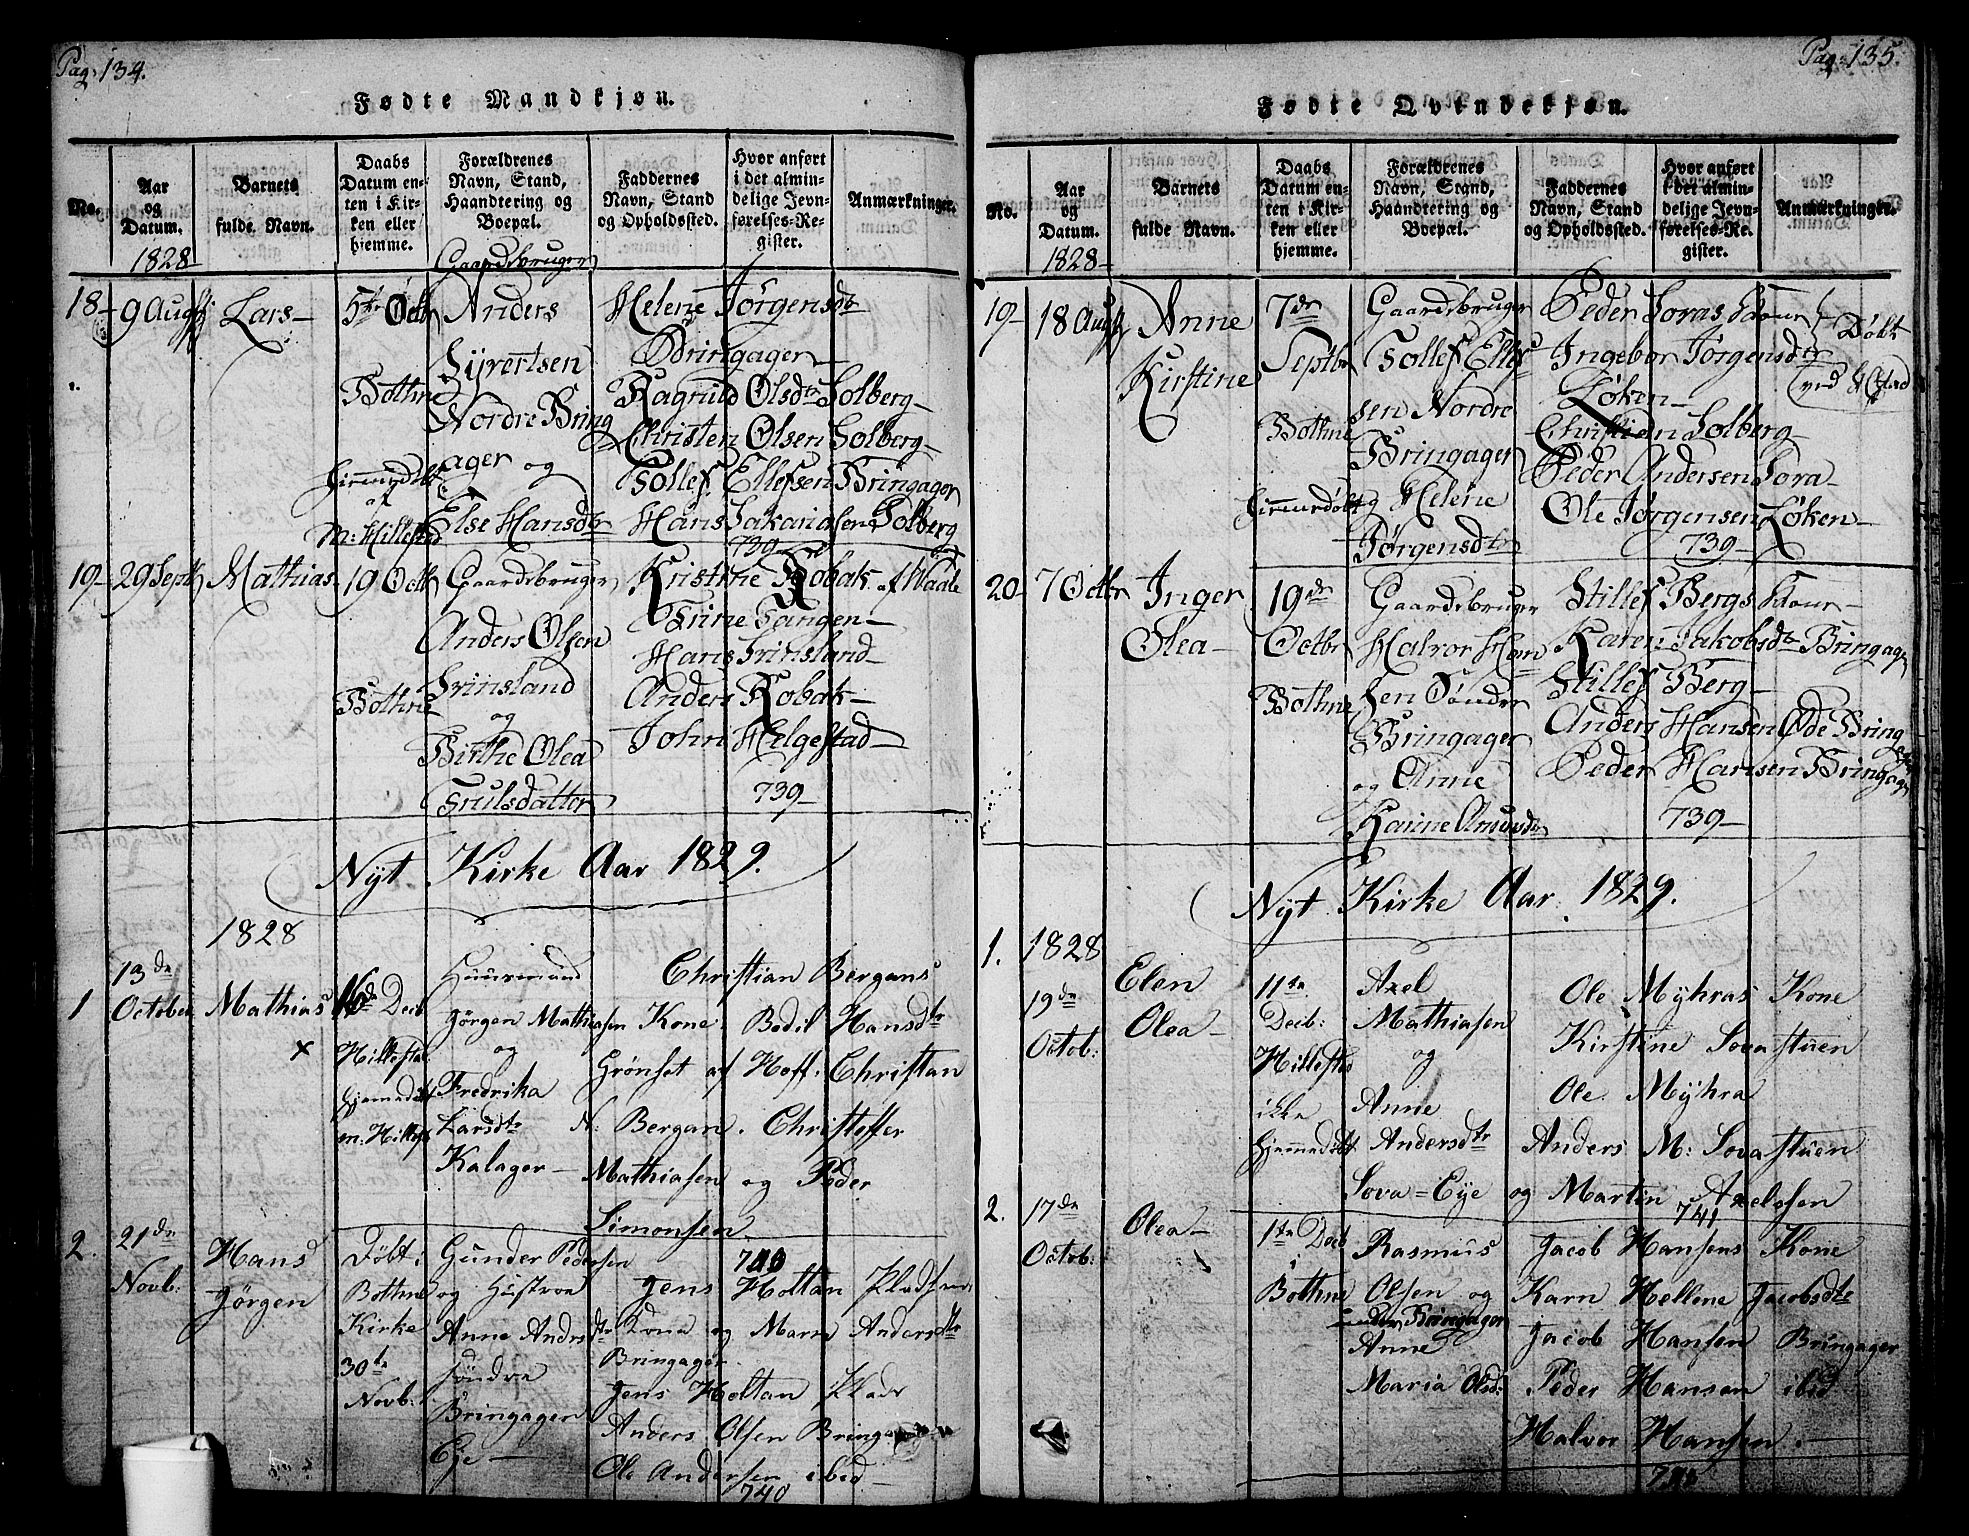 Pag: 134.
Fødte Mandkjøn.
No.
Aar og Datum.
Barnets fulde Navn.
Daabs Datum enten i Kirken eller hjemme.
Forældrenes Navn, Stand, Haandtering og Boepæl.
Faddernes Navn, Stand og Opholdssted.
Hvor anført i det almindelige Jevnførelses-Register.
Anmærkninger.
1828
18
9 Augst
Lars
5te Octb
Bothne
Hiemmedøbt
af
M: Hillestad
Gaardsbruger
Anders
Syvertsen
Nordre Bring
ager og
Else Hansdtr
Helene Jørgensdtr
Bringager
Ragnild Olsdtr Solberg
Christen Olsen Solberg
Tollef Ellefsen Bringager
Hans Sakariasen Solberg
739
19
29 Septb
Mathias
19 Octb
Bothne
Gaardsbruger
Anders Olsen
og
Birthe Olea
Trulsdatter
Kristine Kobak af Waale
Trine Tangen
Hans
Anders Kobak
John Helgestad
739
Nyt Kirke Aar 1829.
1828
1
13de
October
Mathias
x
16de Decb
Hillestad
Hjemmedøbt
m: Hillest
Huusmand
Jørgen Mathiasen
og
Fredrika
Larsdtr
Kalager
Christian Bergans
Kone Bodil Hansdtr
Grønset af Hoff. Christian
N: Bergan. Christoffer
Mathiasen og Peder
Simonsen
740
2.
21de
Novb:
Hans
Jørgen
Døbt i
Bothne
Kirke
30te
Novb:
Gunder Pedersen
og Hustroe
Anne Andrsdtr
søndre
Bringager
Eje
Jens Holtan
Kone og Maren Andersdtr
Bringager
Jens Holtan
Anders Olsen Bringager
Ole Andersen ibid
740
Pag: 135.
Fødte Qvindekjøn.
No.
Aar og Datum.
Barnets fulde Navn.
Daabs Datum enten i Kirken eller hjemme.
Forældrenes Navn, Stand, Haandtering og Boepæl.
Faddernes Navn, Stand og Opholdssted.
Hvor anført i det almindelige Jevnførelses-Register.
Anmærkninger.
1828
19
18 Augst
Anne
Kirstine
7de
Septbr
Bothne
Hiemmedøbt
Gaardsbruger
Tollef Ellef
sen Nordre
Bringager
og Helene
Jørgensdtr
Peder Soras Kone
Ingebor Jørgensdtr
Løken
Christian Solberg
Peder Andersen Sora
Ole Jørgensen Løken
739
Døbt
20
7 Octbr
Inger
Olea
19de
Octbr
Bothne
Gaardsbruger
Halvor Han
sen Sønder
Bringager
og Anne
Karine Amundsdtr
Stillef Bergs Kone
Karen Jakobsdtr Bringager
Stillef Berg
Anders Hansen Øde Bring
ager
Peder Hansen Bringager
739
Nyt Kirke Aar 1829.
1.
1828
19de
Octob:
Elen
Olea
11te
Decb:
Hillestad
ikke
Hjemmedøbt
Axel
Mathiasen
og
Anne
Andersdtr
Sova=Eye
Ole Myhras Kone
Kirstine Sovastuen
Ole Myhra
Anders M: Sovastuen
og Martin Axelsen
741
2.
17de
Octob:
Olea
1te Decb
i
Bothne
Rasmus
Olsen og
Bringager
Anne
Maria Olsd:
Jacob Hansens Kone
Karn Hellene Jacobsdtr
Jacob Hansen Bringager
Peder Hansen ibid
Halvor Hansen.